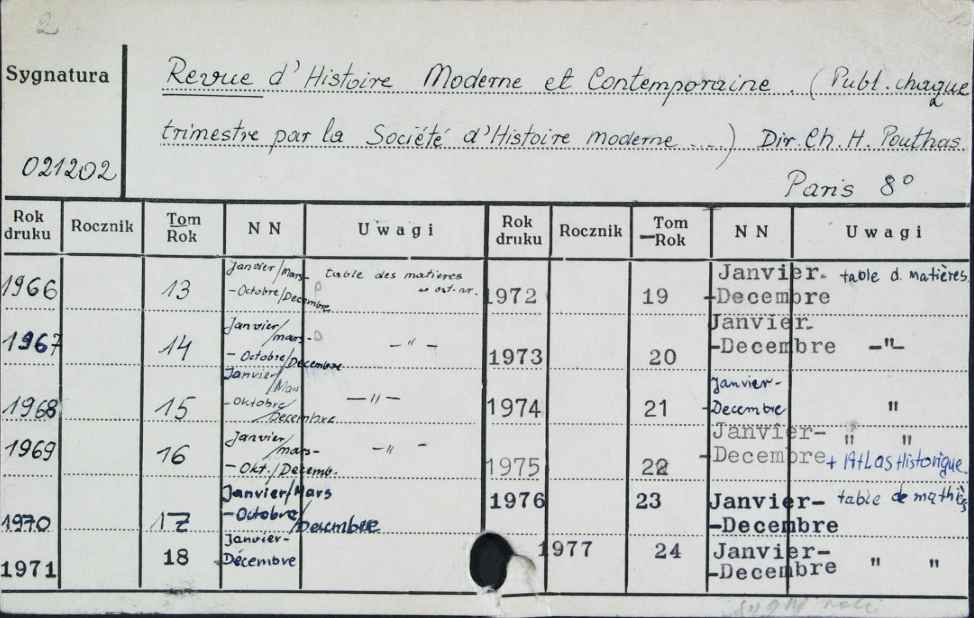 2
Sygnatura
021202
Revue d'Histoire Moderne et Contemporaine. (Publ. chaque
trimestre par la Société d'Histoire moderne ....) Dir. Ch. H. Pouthas.
Paris 8°
Rok druku Rocznik Tom Rok NN Uwagi Rok druku Rocznik Tom Rok NN Uwagi
1966 13 Janvier/Mars- table des matieres
-Octobre/Decembre w ost. nr.
1967 14 Janvier/mars- -"-
-Octobre/Decembre
1968 15 Janvier/Mars -"-
-Oktobre/Decembre
1969 16 Janvier/mars- -"-
-Okt./Decemb.
1970 17 Janvier/Mars
-Octobre/Decembre
1971 18 Janvier-
Décembre
1972 19 Janvier- table d. matières
-Decembre
1973 20 Janvier- -"-
-Decembre
1974 21 Janvier- "
-Decembre
1975 22 Janvier- " "
-Decembre + Atlas Historique
1976 23 Janvier- table de mathiès
-Decembre
1977 24 Janvier- " "
-Decembre